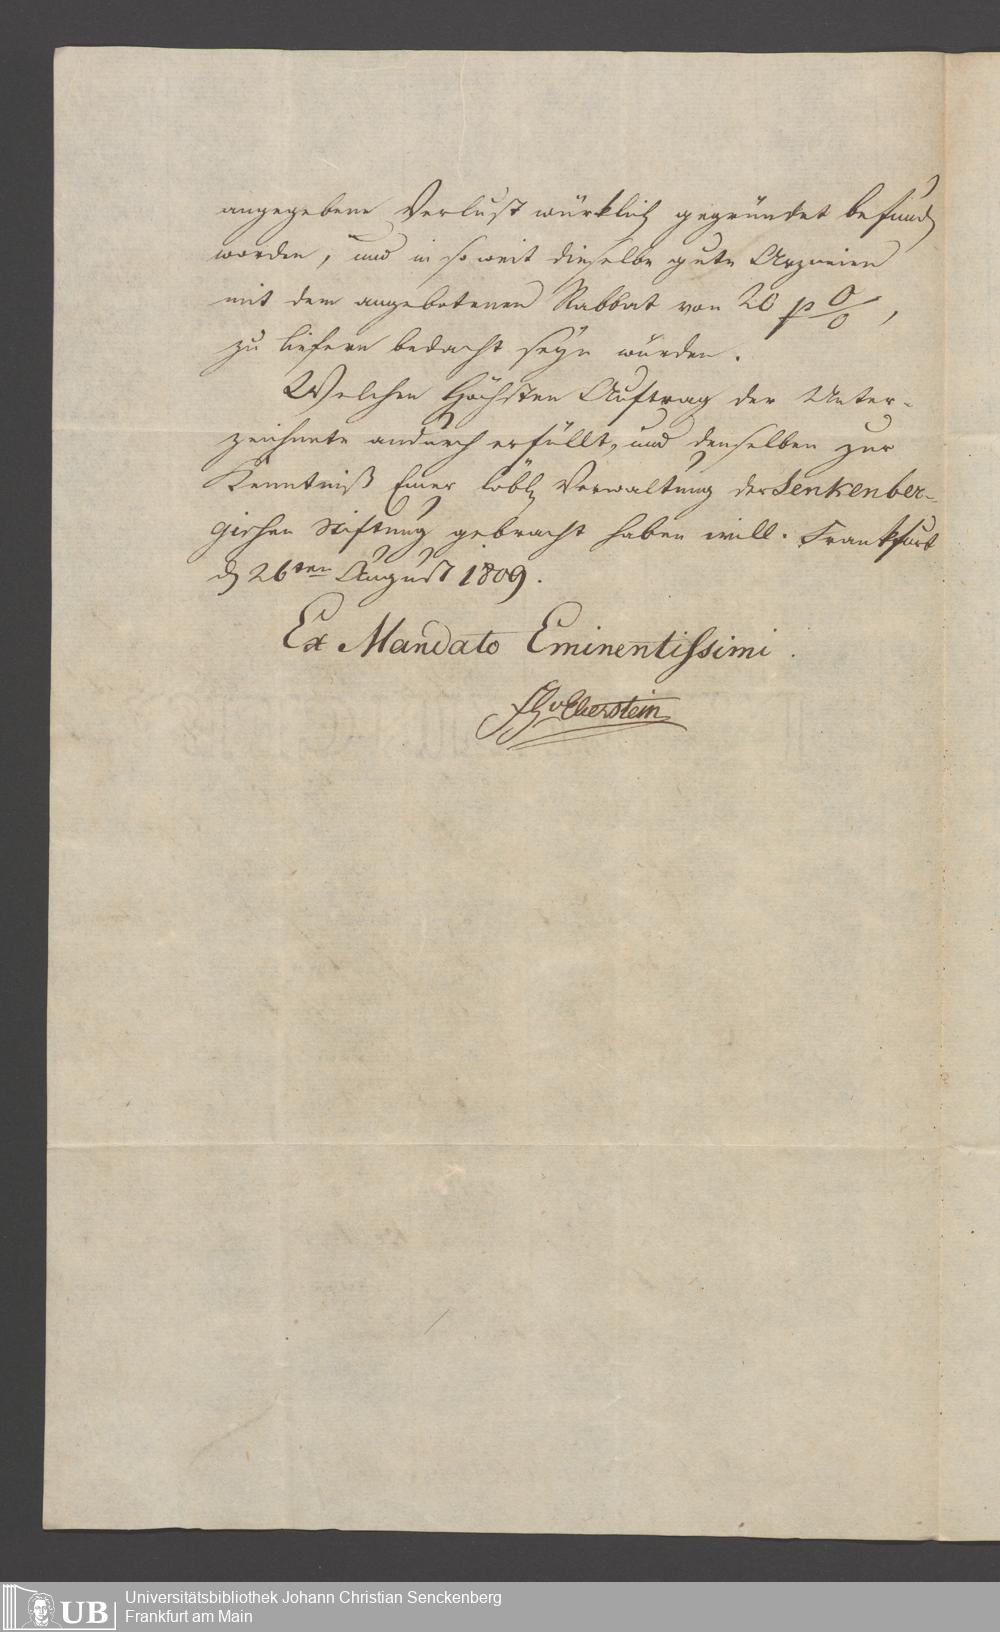 angegebene Verlust würklich gegründet befunden
worden, und in so weit dieselbe gute Arzneien
mit dem angebotenen Rabbat von 20 p%,
zu liefern bedacht seyn würden.
Welchen Höchsten Auftrag der Unter-
zeichnete andurch erfüllt, und denselben zur
Kenntniß Einer löbl. Verwaltung der Senkenber-
gischen Stiftung gebracht haben will. Frankfurt
d 26ten August 1809.
Ex Mandato Eminentissimi.
v Eberstein
UB
Universitätsbibliothek Johann Christian Senckenberg
Frankfurt am Main